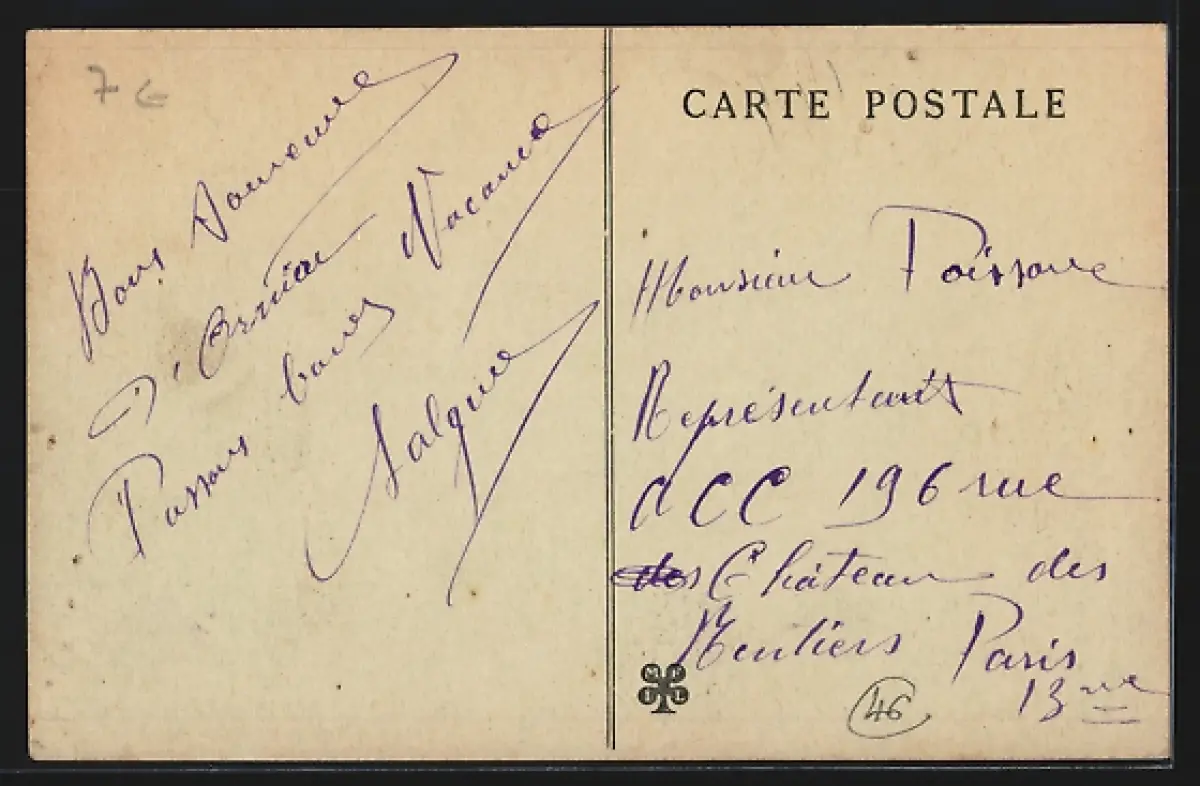 7 €
Bons Souvenirs
Passons bonnes Vacances
CARTE POSTALE
Monsieur Poissonne
Représentant
196 rue
des Château des
Rentiers Paris
13me
46